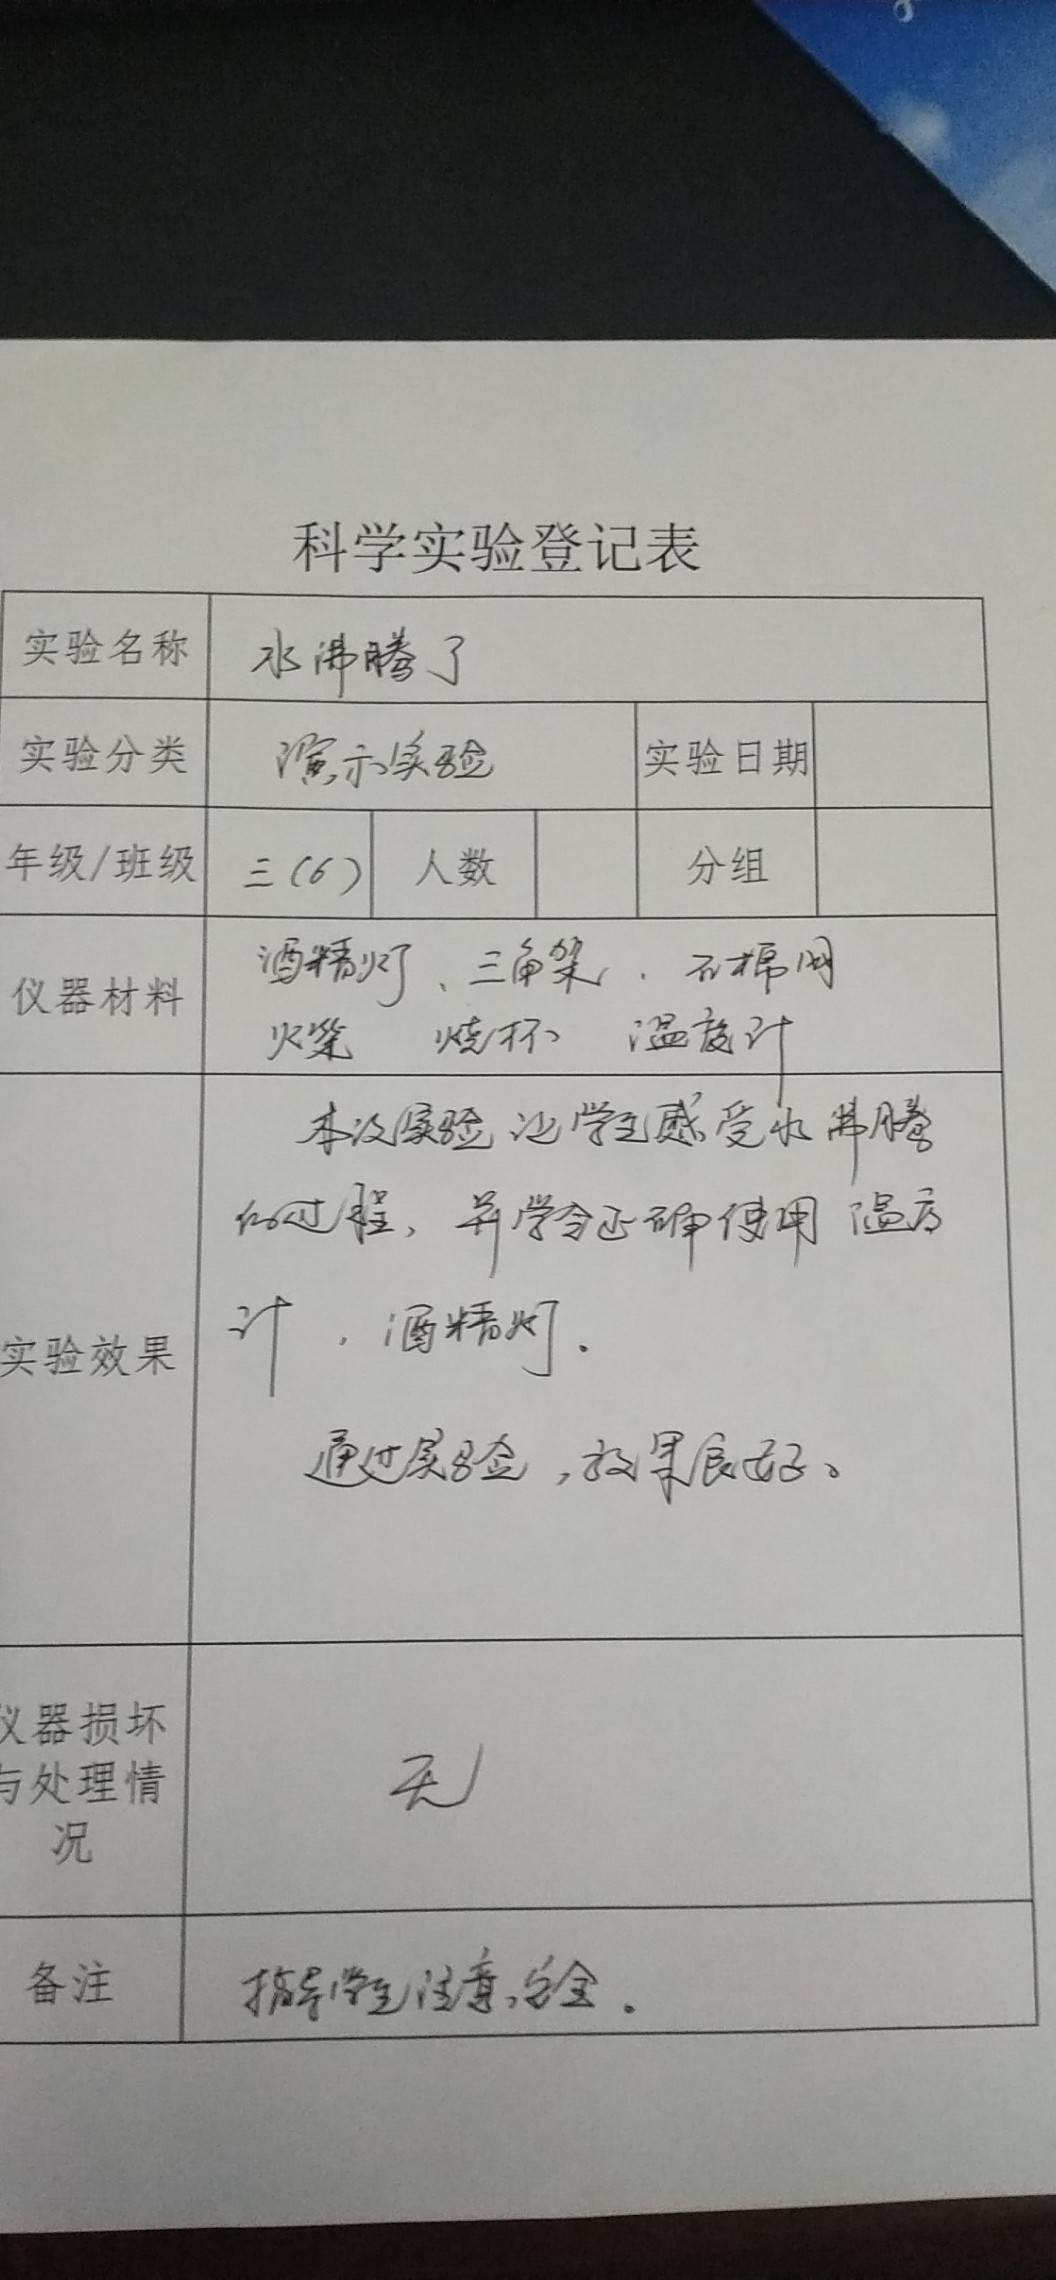 科学实验登记表
实验名称 水沸腾了
实验分类 演示实验 实验日期
年级/班级 三(6) 人数 分组
仪器材料 酒精灯、三角架、石棉网
火柴 烧杯 温度计
实验效果 本次实验让学生感受水沸腾
的过程,并学会正确使用温度
计、酒精灯.
通过实验,效果良好。
仪器损坏
与处理情
况
无
备注 指导学生注意安全.